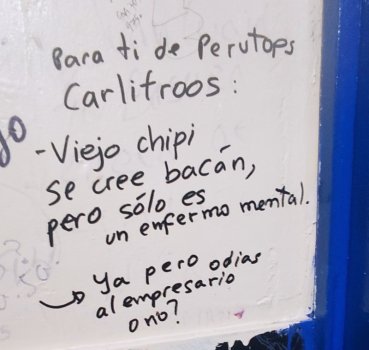 Para ti de Perutops
Carlitroos:
-Viejo chipi
se cree bacán,
pero sólo es
un enfermo mental.
Ya pero odias
al empresario
o no?